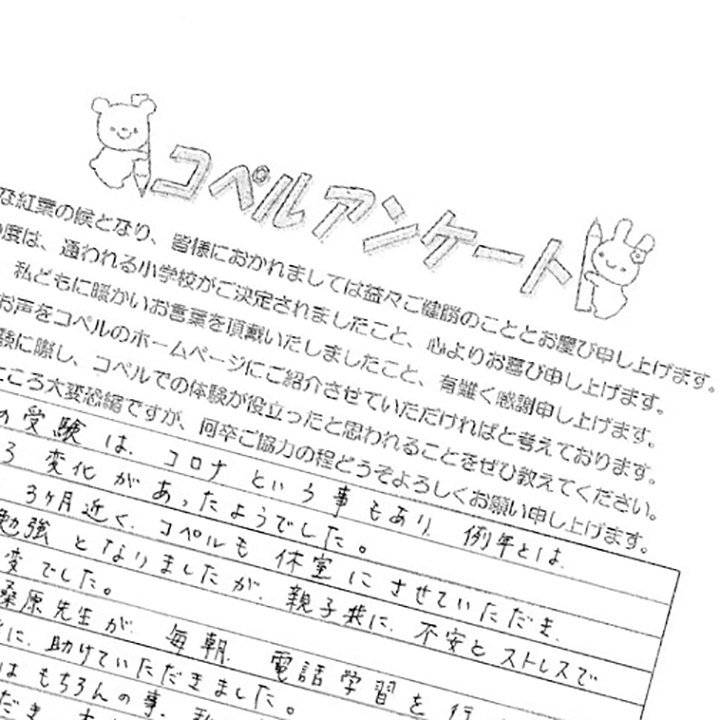 コペルアンケート
な紅葉の候となり、皆様におかれましては益々ご健勝のこととお慶び申し上げます。
度は、通われる小学校がご決定されましたこと、心よりお喜び申し上げます。
私どもに暖かいお言葉を頂戴いたしましたこと、有難く感謝申し上げます。
お声をコペルのホームページにご紹介させていただければと考えております。
験に際し、コペルでの体験が役立ったと思われることをぜひ教えてください。
ころ大変恐縮ですが、何卒ご協力の程どうぞよろしくお願い申し上げます。
の受験は、コロナという事もあり、例年とは、
ろ変化があったようでした。
3ヶ月近く、コペルも休室にさせていただき、
勉強となりましたが、親子共に、不安とストレスで
変でした。
桑原先生が、毎朝、電話学習を行
に、助けていただきました。
はもちろんの事、